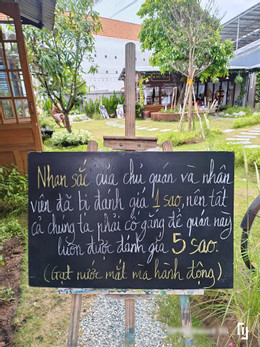 Nhan sắc của chủ quán và nhân
viên đã bị đánh giá 1 sao, nên tất
cả chúng ta phải cố gắng để quán này
luôn được đánh giá 5 sao.
(Gạt nước mắt mà hành động)